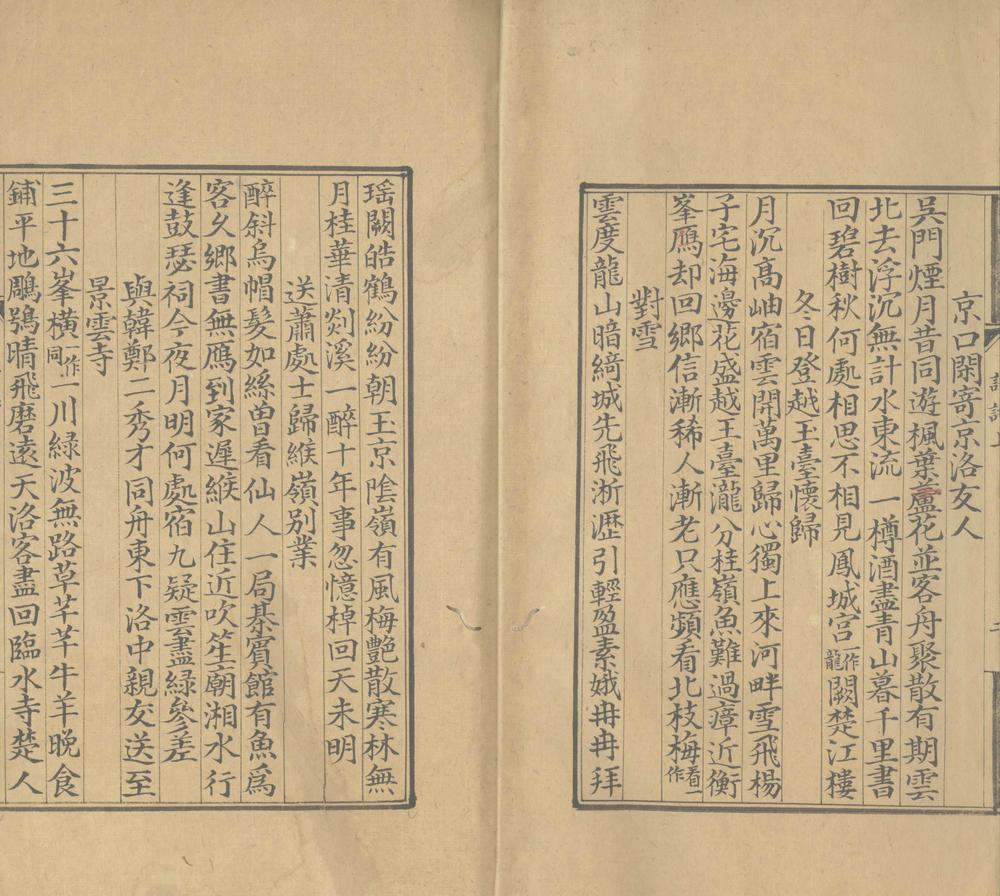 京口閑寄京洛友人
吳門煙月昔同遊楓葉蘆花並客舟聚散有期雲
北去浮沉無計水東流一樽酒盡青山暮千里書
回碧樹秋何處相思不相見鳳城宮一作龍闕楚江樓
冬日登越王臺懷歸
月沉高岫宿雲開萬里歸心獨上來河畔雪飛楊
子宅海邊花盛越王臺瀧分桂嶺魚難過瘴近衡
峯鴈却回鄉信漸稀人漸老只應頻看北枝梅看一作
對雪
雲度龍山暗綺城先飛淅瀝引輕盈素娥冉冉拜
瑶闕皓鶴紛紛朝玉京陰嶺有風梅艷散寒林無
月桂華清剡溪一醉十年事忽憶棹回天未明
送蕭處士歸緱嶺別業
醉斜烏帽髮如絲曾看仙人一局棊賓館有魚爲
客久鄉書無鴈到家遲緱山住近吹笙廟湘水行
逢鼓瑟祠今夜月明何處宿九疑雲盡綠參差
與韓鄭二秀才同舟東下洛中親友送至
景雲寺
三十六峯橫一作同一川綠波無路草芊芊牛羊晚食
鋪平地鵰鶚晴飛磨遠天洛客盡回臨水寺楚人